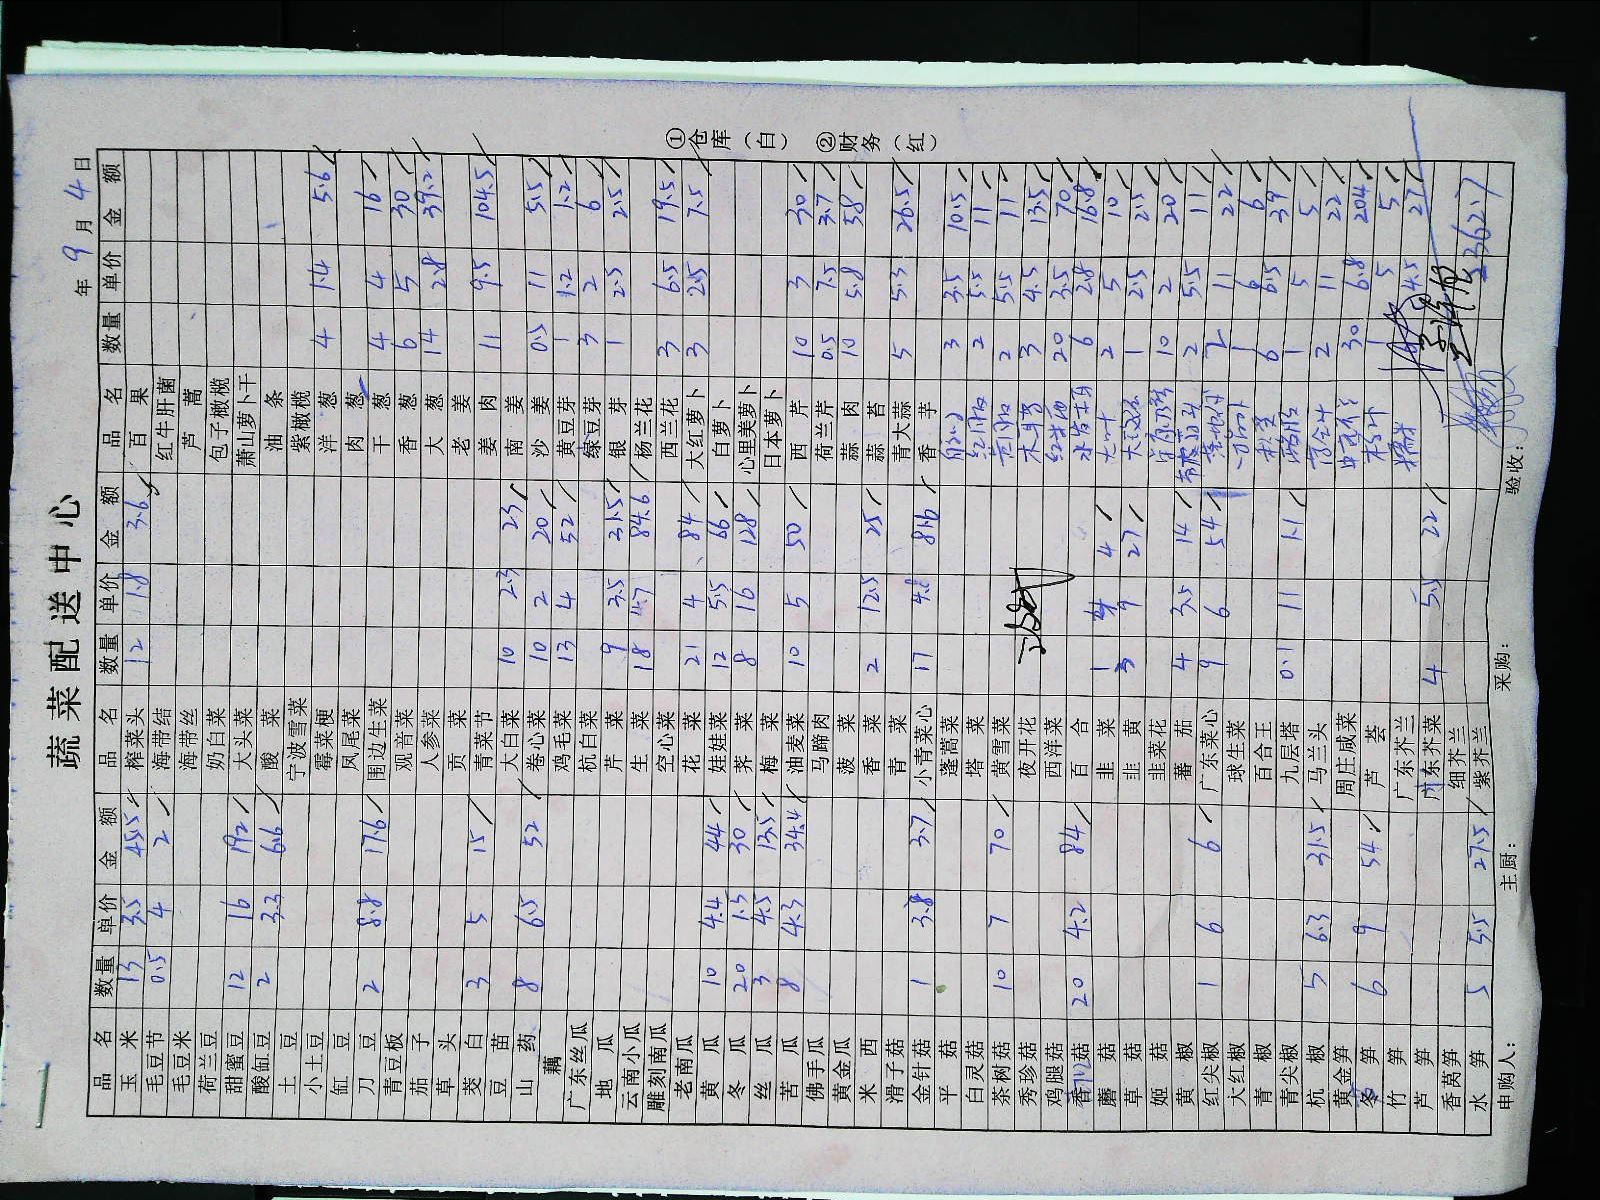 蔬菜配送中心
年 9 月 4 日
品名 数量 单价 金额 品名 数量 单价 金额 品名 数量 单价 金额
玉米 13 3.5 45.5 榨菜头 12 1.8 3.6 百果
毛豆节 0.5 4 2 海带结 红牛肝菌
毛豆米 海带丝 芦蒿
荷兰豆 奶白菜 包子橄榄
甜蜜豆 12 16 192 大头菜 萧山萝卜干
酸缸豆 2 3.3 6.6 酸菜 油条
土豆 宁波雪菜 紫橄榄
小土豆 霉菜梗 洋葱 4 1.4 5.6
缸豆 凤尾菜 肉葱
刀豆 2 8.8 17.6 围边生菜 干葱 4 4 16
青豆板 观音菜 香葱 6 5 30
茄子 人参菜 大葱 14 2.8 39.2
草头 贡菜 老姜
茭白 3 5 15 青菜节 姜肉 11 9.5 104.5
豆苗 大白菜 10 2.3 23 南姜
山药 8 6.5 52 卷心菜 10 2 20 沙姜 0.5 11 5.5
藕 鸡毛菜 13 4 52 黄豆芽 1 1.2 1.2
广东丝瓜 杭白菜 绿豆芽 3 2 6
地瓜 芹菜 9 3.5 31.5 银芽 1 2.5 2.5
云南小瓜 生菜 18 4.7 84.6 杨兰花
雕刻南瓜 空心菜 西兰花 3 6.5 19.5
老南瓜 花菜 21 4 84 大红萝卜 3 2.5 7.5
黄瓜 10 4.4 44 娃娃菜 12 5.5 66 白萝卜
冬瓜 20 1.5 30 荠菜 8 16 128 心里美萝卜
丝瓜 3 4.5 13.5 梅菜 日本萝卜
苦瓜 8 4.3 34.4 油麦菜 10 5 50 西芹 10 3 30
佛手瓜 马蹄肉 荷兰芹 0.5 7.5 3.7
黄金瓜 菠菜 蒜肉 10 5.8 58
米西 香菜 2 12.5 25 蒜苔
滑子菇 青菜 青大蒜 5 5.3 26.5
金针菇 1 3.8 3.7 小青菜心 17 4.8 81.6 香芋
平菇 蓬蒿菜 3 3.5 10.5
白灵菇 塔菜 2 5.5 11
茶树菇 10 7 70 黄雪菜 2 5.5 11
秀珍菇 夜开花 3 4.5 13.5
鸡腿菇 西洋菜 20 3.5 70
香菇 20 4.2 84 百合 6 2.8 16.8
蘑菇 韭菜 1 4 4 2 5 10
草菇 韭黄 3 9 27 1 2.5 2.5
姬菇 韭菜花 10 2 20
黄椒 蕃茄 4 3.5 14 2 5.5 11
红尖椒 1 6 6 广东菜心 9 6 54 2 11 22
大红椒 球生菜 1 6 6
青椒 百合王 6 6.5 39
青尖椒 九层塔 0.1 11 1.1 1 5 5
杭椒 5 6.3 31.5 马兰头 2 11 22
黄金笋 周庄咸菜 30 6.8 204
冬笋 6 9 54 芦荟 1 5 5
竹笋 广东芥兰 糯米 4.5 27
芦笋 广东芥菜 4 5.5 22
香莴笋 细芥兰
水笋 5 5.5 27.5 紫芥兰 2362.7
申购人： 主厨： 采购： 验收：
①仓库（白） ②财务（红）